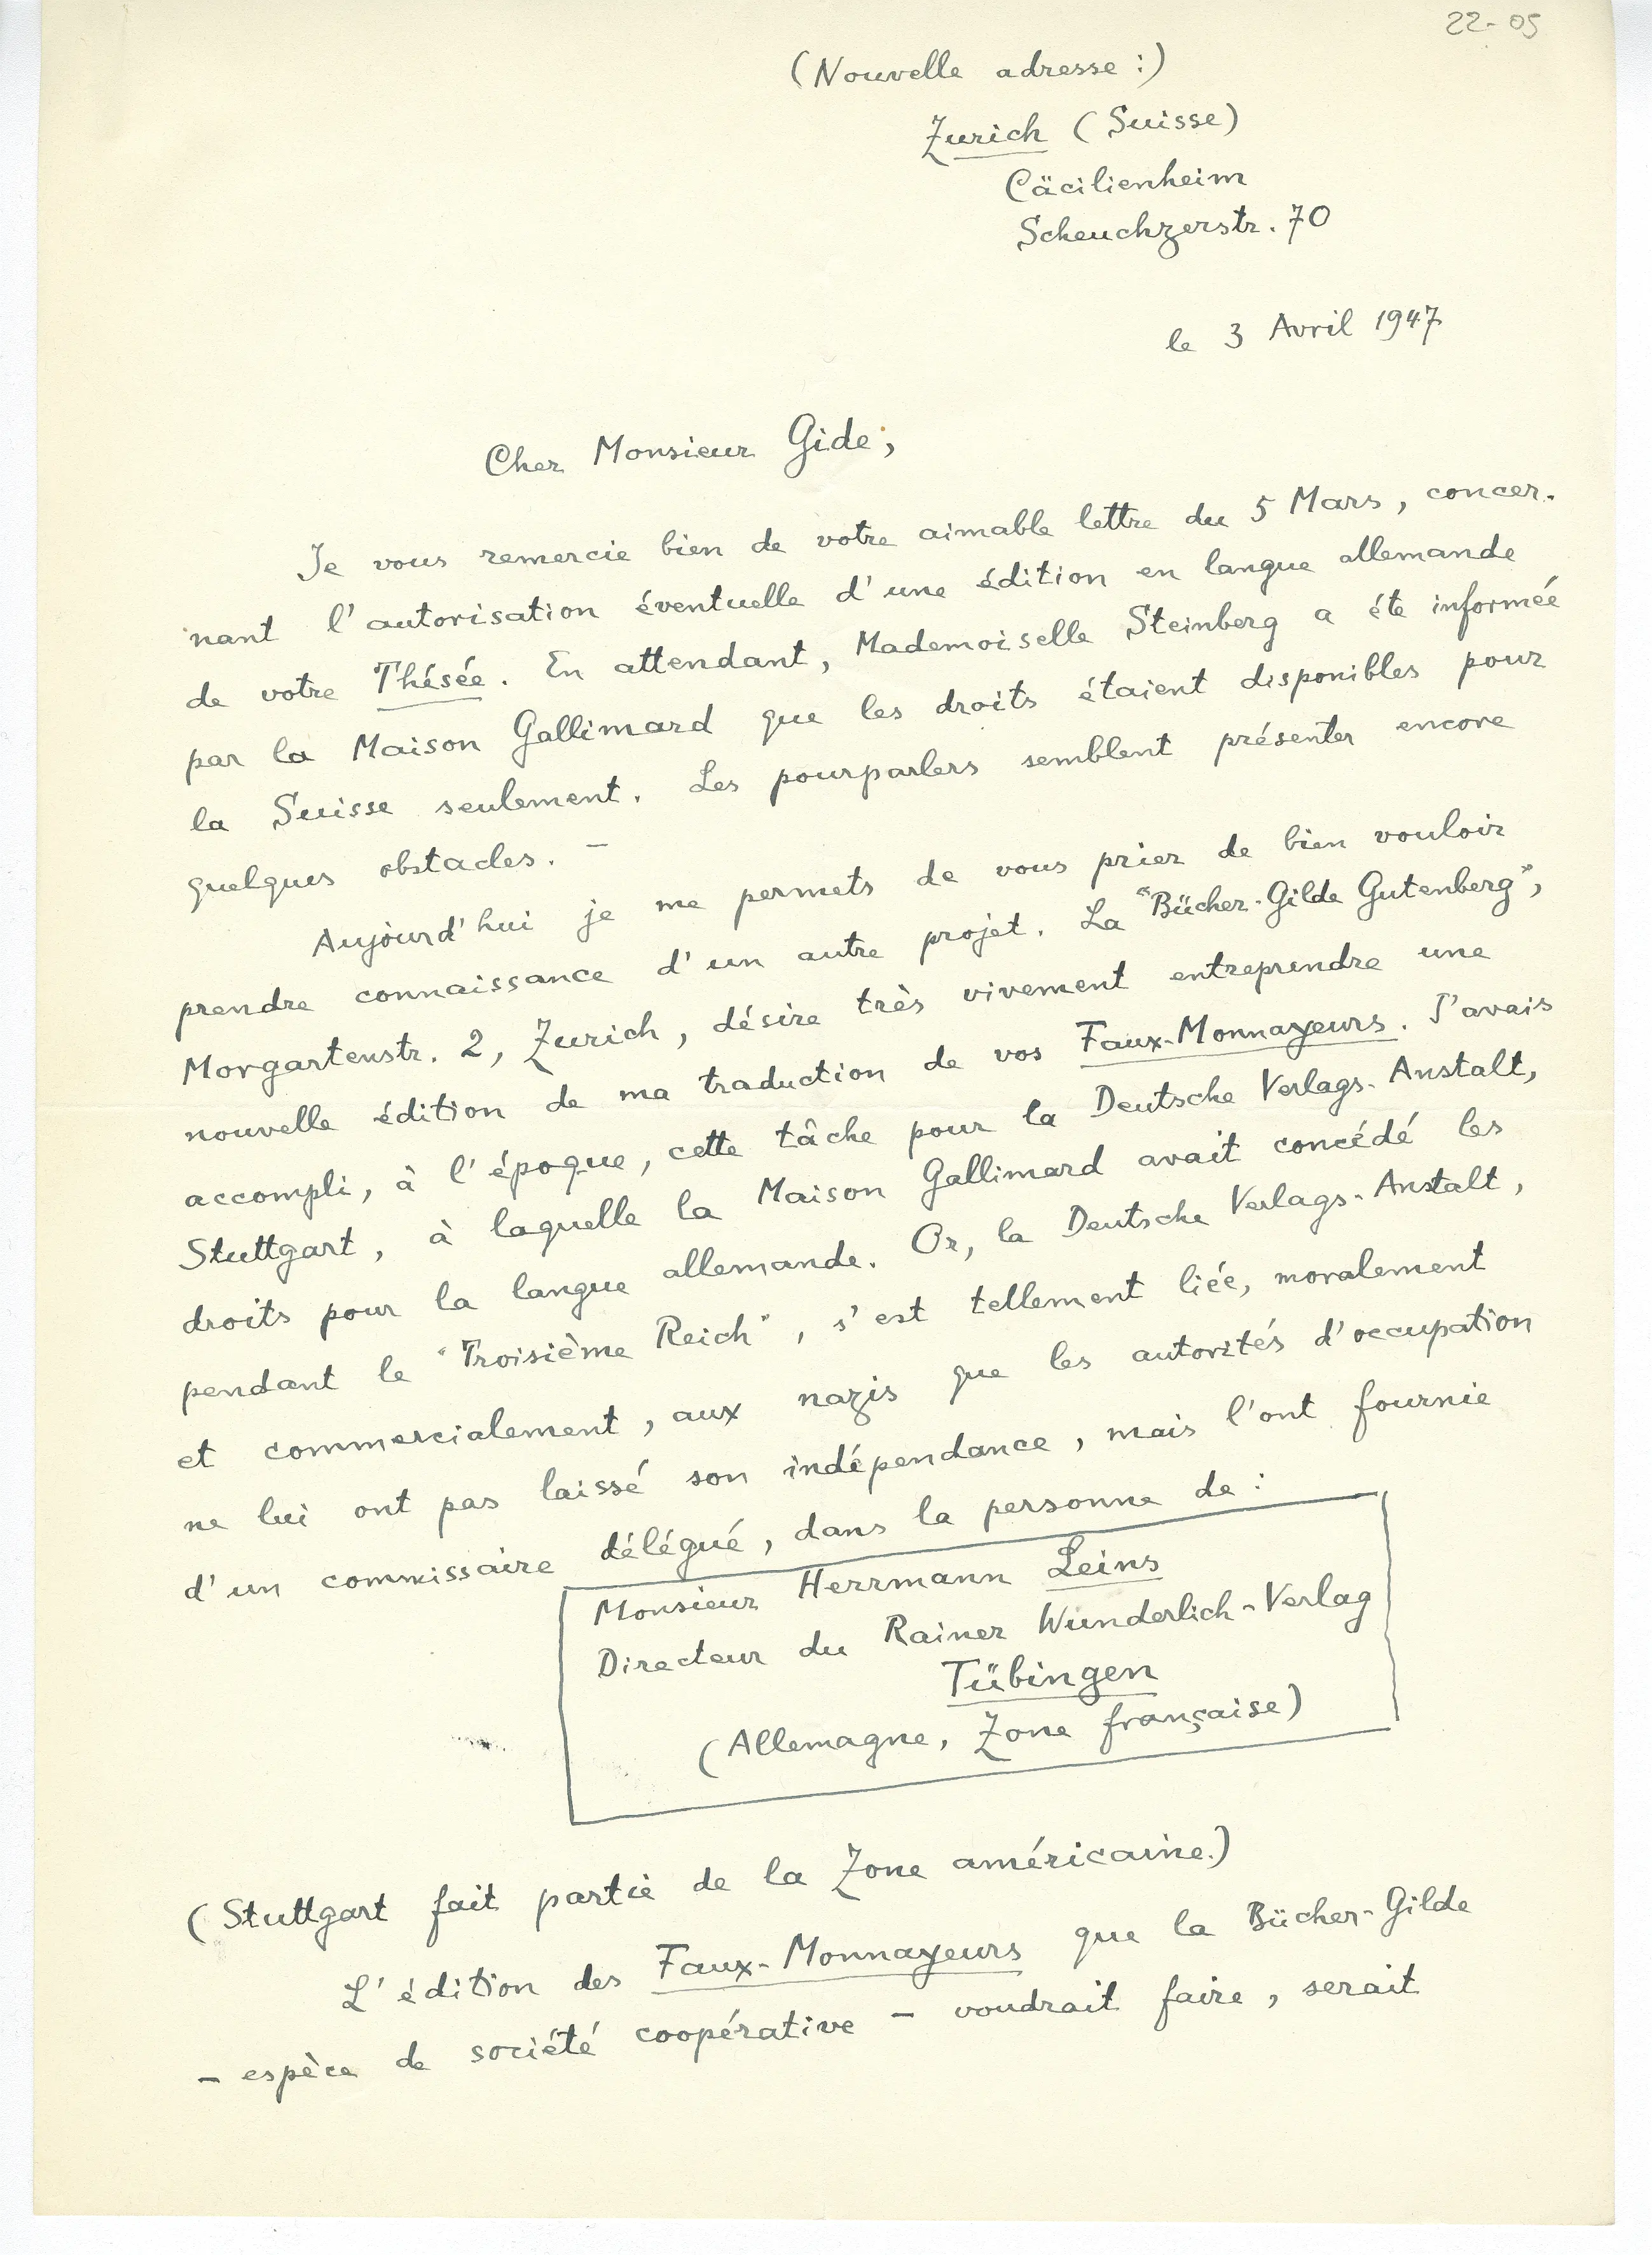 22-05
(Nouvelle adresse :)
Zurich (Suisse)
Cäcilienheim
Scheuchzerstr. 70
le 3 Avril 1947
Cher Monsieur Gide,
Je vous remercie bien de votre aimable lettre du 5 Mars, concer-
nant l'autorisation éventuelle d'une édition en langue allemande
de votre Thésée. En attendant, Mademoiselle Steinberg a éte informée
par la Maison Gallimard que les droits étaient disponibles pour
la Suisse seulement. Les pourparlers semblent présenter encore
quelques obstacles. –
Aujourd'hui je me permets de vous prier de bien vouloir
prendre connaissance d'un autre projet. La "Bücher-Gilde Gutenberg",
Morgartenstr. 2, Zurich, désire très vivement entreprendre une
nouvelle édition de ma traduction de vos Faux-Monnayeurs. J'avais
accompli, à l'époque, cette tâche pour la Deutsche Verlags-Anstalt,
Stuttgart, à laquelle la Maison Gallimard avait concédé les
droits pour la langue allemande. Or, la Deutsche Verlags-Anstalt,
pendant le "Troisième Reich", s'est tellement liée, moralement
et commercialement, aux nazis que les autorités d'occupation
ne lui ont pas laissé son indépendance, mais l'ont fournie
d'un commissaire délégué, dans la personne de :
Monsieur Herrmann Leins
Directeur du Rainer Wunderlich-Verlag
Tübingen
(Allemagne, Zone française)
(Stuttgart fait partie de la Zone américaine.)
L'édition des Faux-Monnayeurs que la Bücher-Gilde
– espèce de société coopérative – voudrait faire, serait